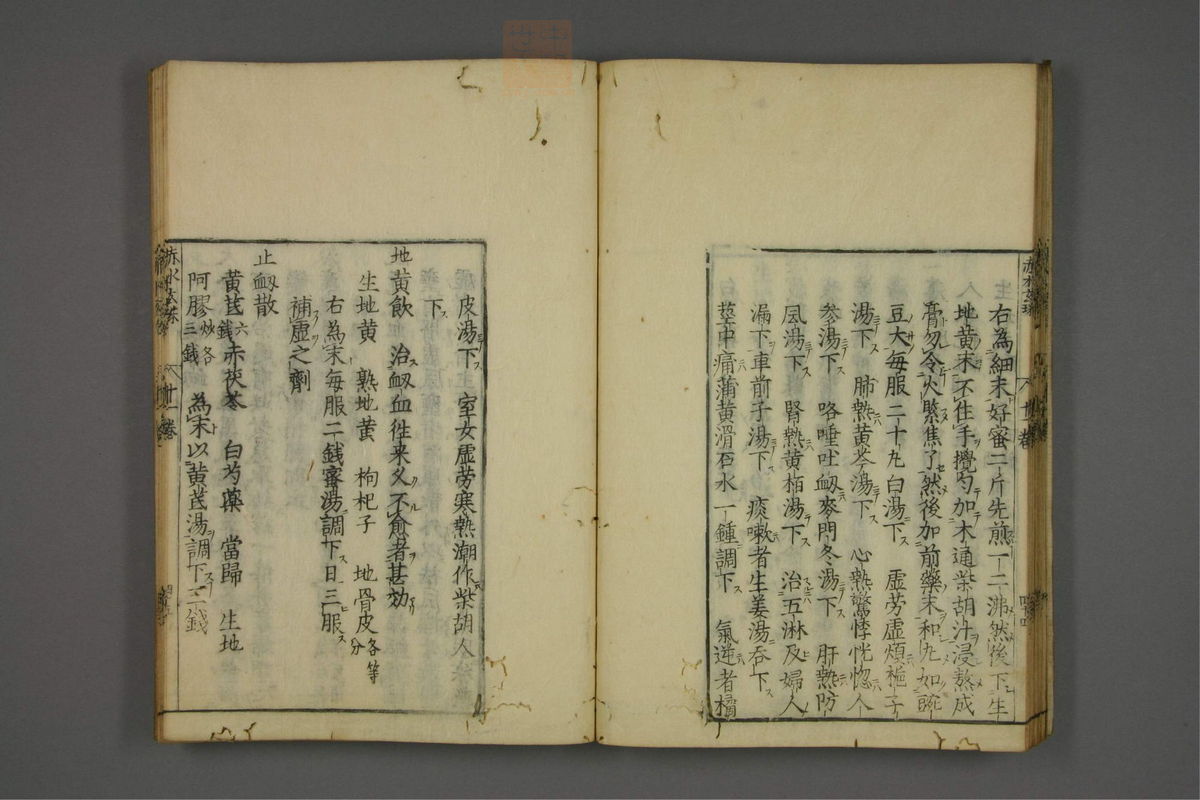 右為細末好蜜二斤先煎一二沸然後下生
地黄末不住手攪勻加木通柴胡汁浸熬成
膏勿令火緊焦了然後加前藥末和丸如豌
豆大每服二十丸白湯下 虚劳虚煩梔子
湯下 肺熱黄芩湯下 心熱驚悸恍惚人
參湯下 咯唾吐衂麥門冬湯下 肝熱防
風湯下 腎熱黄栢湯下 治五淋及婦人
漏下車前子湯下 痰嗽者生姜湯吞下
莖中痛蒲黄滑石水一鍾調下 氣逆者橘
皮湯下 室女虚劳寒熱潮作柴胡人參
下
地黄飲 治衂血徃来久不愈者甚効
生地黄 熟地黄 枸杞子 地骨皮各等分
右為末每服二銭蜜湯調下日三服
補虚之劑
止衂散
黄芪六銭 赤茯苓 白芍藥 當歸 生地
阿膠炒各三銭 為末以黄芪湯調下二銭